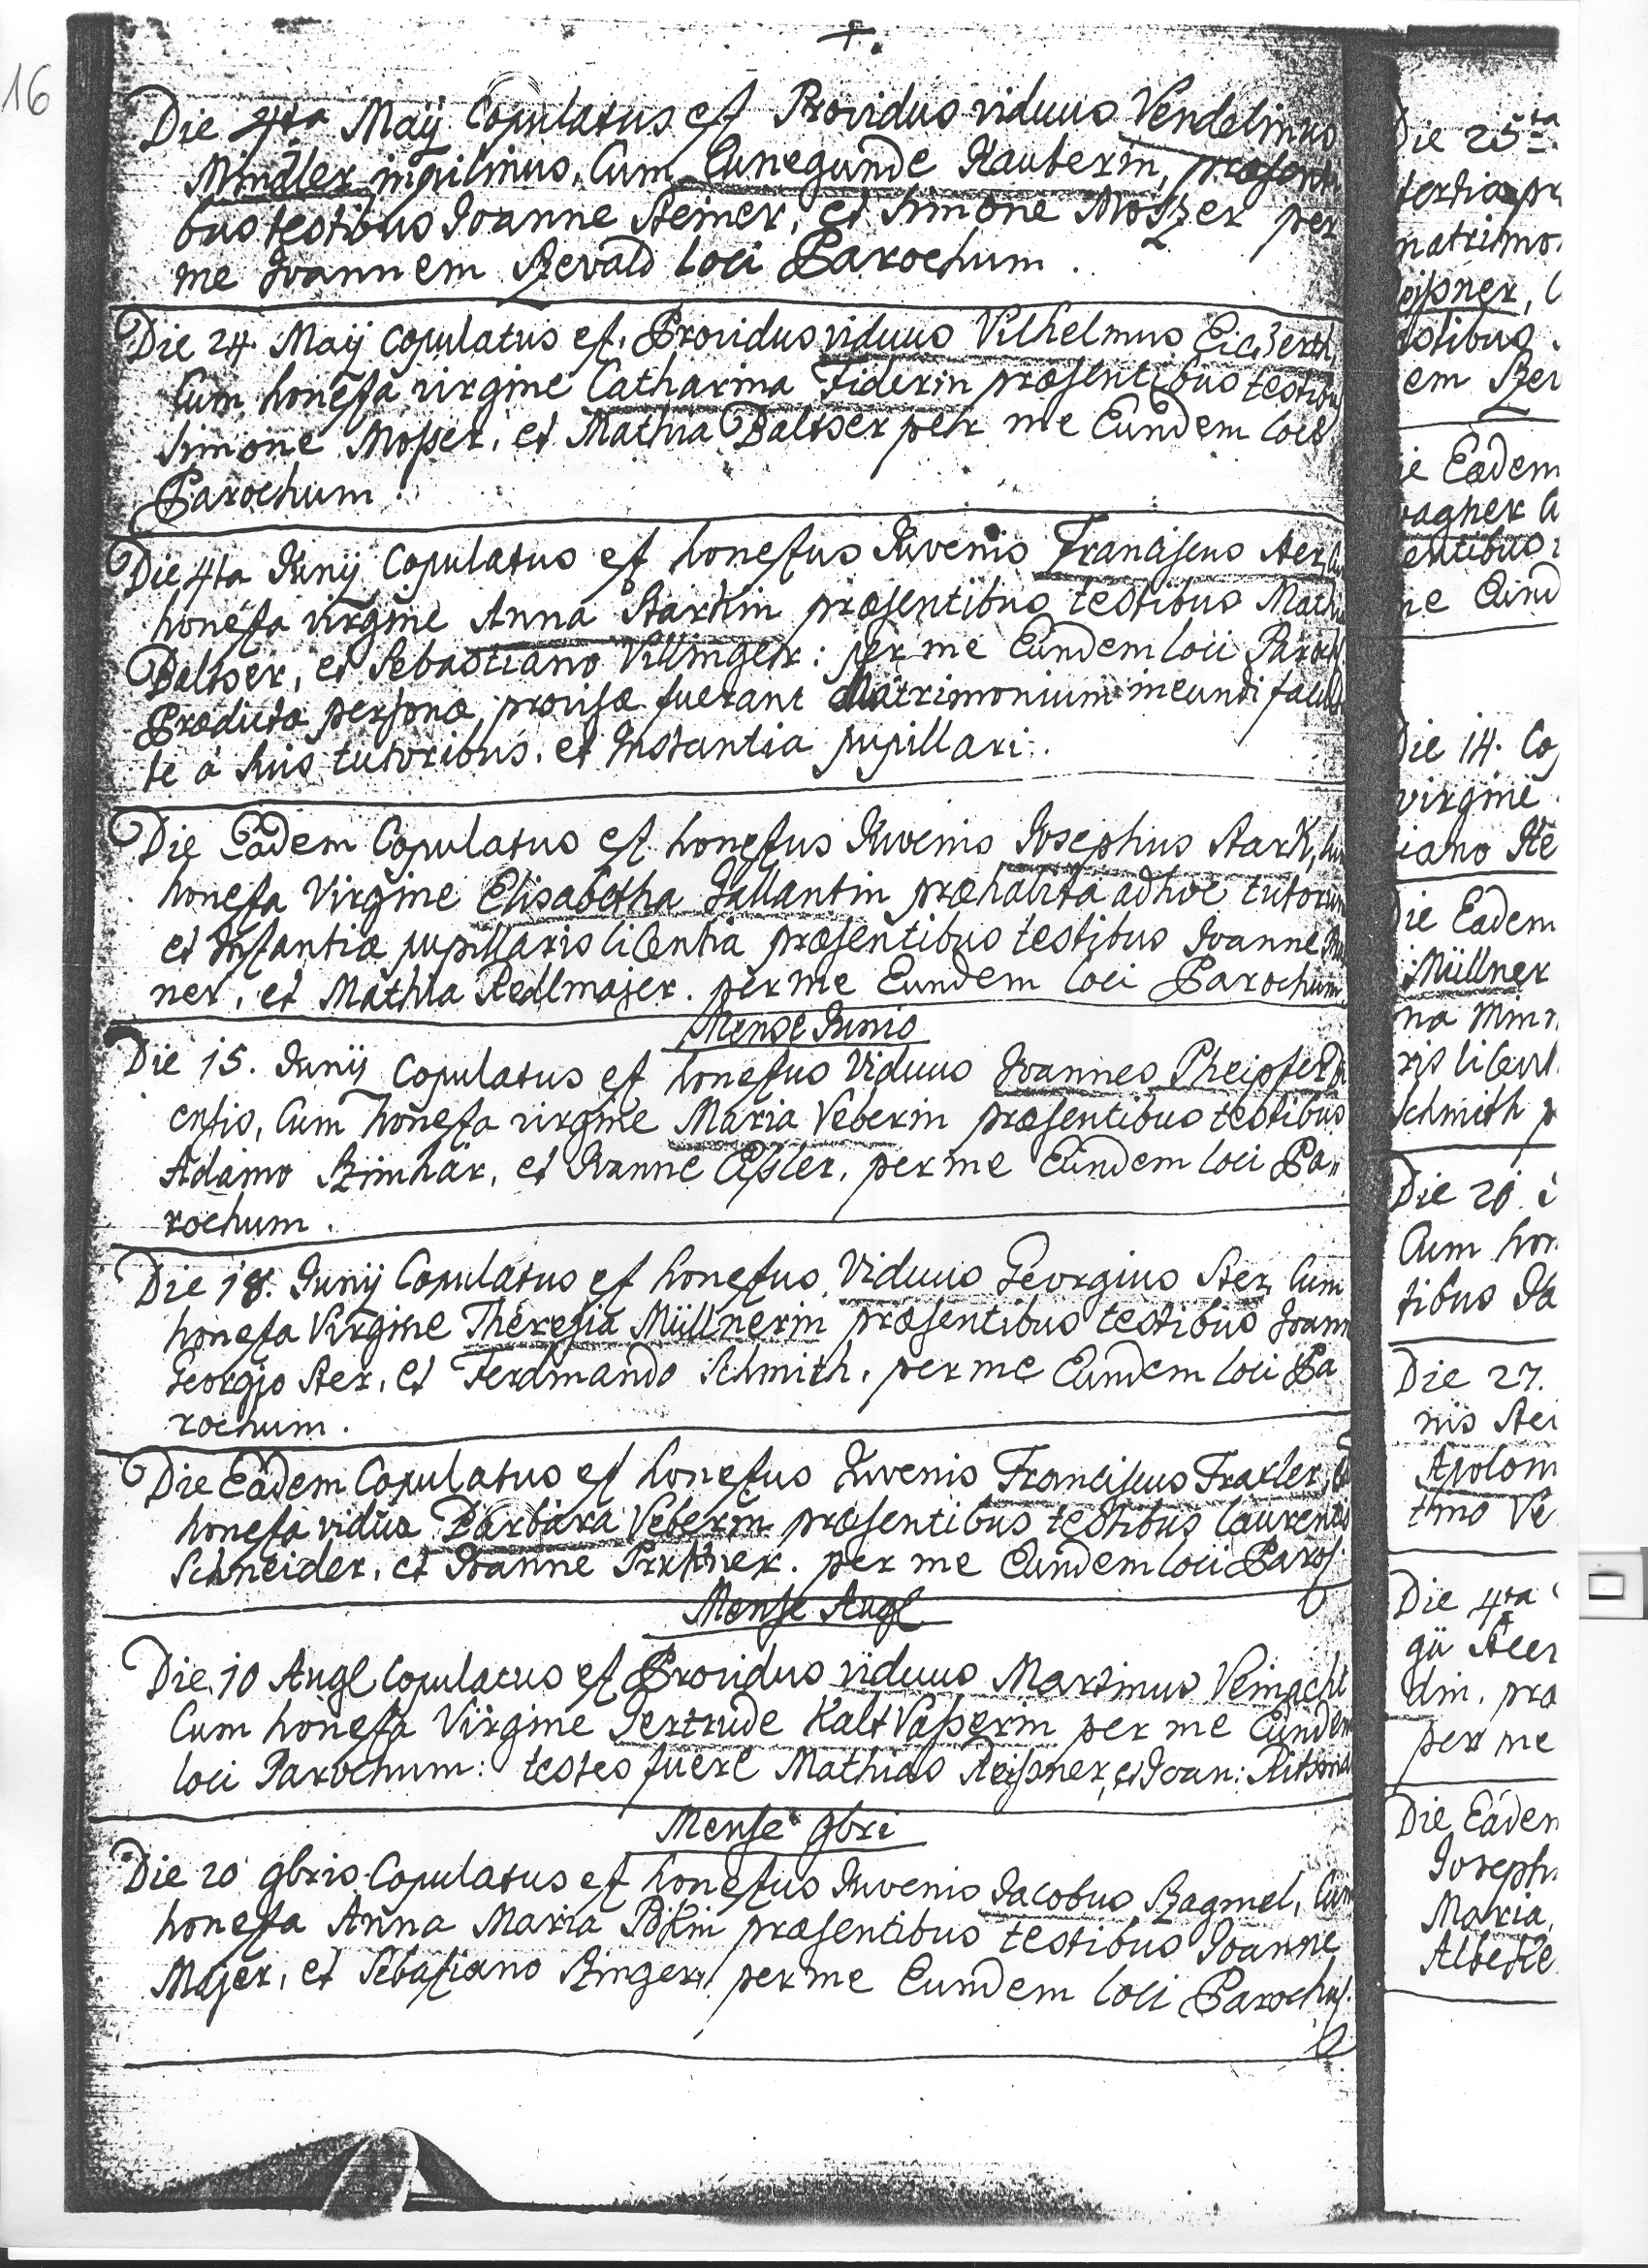 16
Die 4ta Maij Copulatus est Providus viduus Vendelinus
Mindler inquilinus, Cum Cunegunde Hauberin, præsenti
bus testibus Joanne Steiner, et Simone Moszer per
me Joannem Szevald loci Parochum.
Die 24. Maij Copulatus est Providus viduus Vilhelmus
Cum honesta virgine Catharina Fiderin præsentibus testibus
Simone Mosser, et Mathia Baltser per me Eundem loci
Parochum.
Die 4ta Junij Copulatus est honestus Juvenis Franciscus Ster,
honesta virgine Anna Starkin præsentibus testibus
Baltser, et Sebastiano Villinger: per me Eundem loci Paroch
Prædictæ personæ, provisæ fuerant Matrimonium ineundi facul
te à suis tutoribus, et Instantia pupillari.
Die Eadem Copulatus est honestus Juvenis Josephus Stark,
honesta Virgine Elisabetha Gallantin præhabita adhoc tutorum
et Instantiæ pupillaris licentia præsentibus testibus Joanne
ner, et Mathia Redlmajer. per me Eundem loci Parochum
Mense Junio
Die 15. Junij Copulatus est honestus Viduus Joannes Pheipfer
ensis, Cum honesta virgine Maria Veberin præsentibus testibus
Adamo Szinhar, et Joanne Eisler, per me Eundem loci Pa„
rochum.
Die 18. Junij Copulatus est honestus Viduus Georgius Ster, Cum
honesta Virgine Theresia Müllnerin præsentibus testibus Joann
Georgio Ster, et Ferdinando Schmith, per me Eundem loci Pa
rochum.
Die Eadem Copulatus est honestus Juvenis Franciscus Fraxler,
honesta vidua Barbara Veberin præsentibus testibus Laurentio
Schneider, et Joanne per me Eundem loci Paroj.
Mense Augl
Die 10 Augl Copulatus est Providus viduus Martinus Veinacht
Cum honesta Virgine Gertrude KaltVasserin per me Eundem
loci Parochum: testes fuere Mathias Reissner, et Joan:
Mense 9bri
Die 20 9bris Copulatus est honestus Juvenis Jacobus Szagmel, Cum
honesta Anna Maria præsentibus testibus Joanne
Majer, et Sebastiano Szinger, per me Eundem loci Paroch
Die 25ta
tertia pr
matrimo
eissner, C
stibus
em Szev
ie Eadem
vagner C
entibus
me Eund
Die 14. Co
virgine
iano Ste
Die Eadem
Müllner
na Min
ris licent
Schmith p
Die 20
Cum hon
tibus Jo
Die 27.
nis Stei
Apolon
tino Ve
Die 4ta
gii Steer
din, præ
per me
Die Eadem
Joseph
Maria,
Alberte